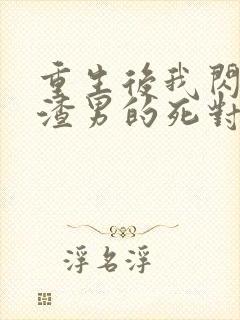 重生後我閃
渣男的死對
浮名浮